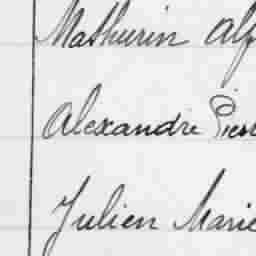 Mathurin Alf
Alexandre Pier
Julien Marie